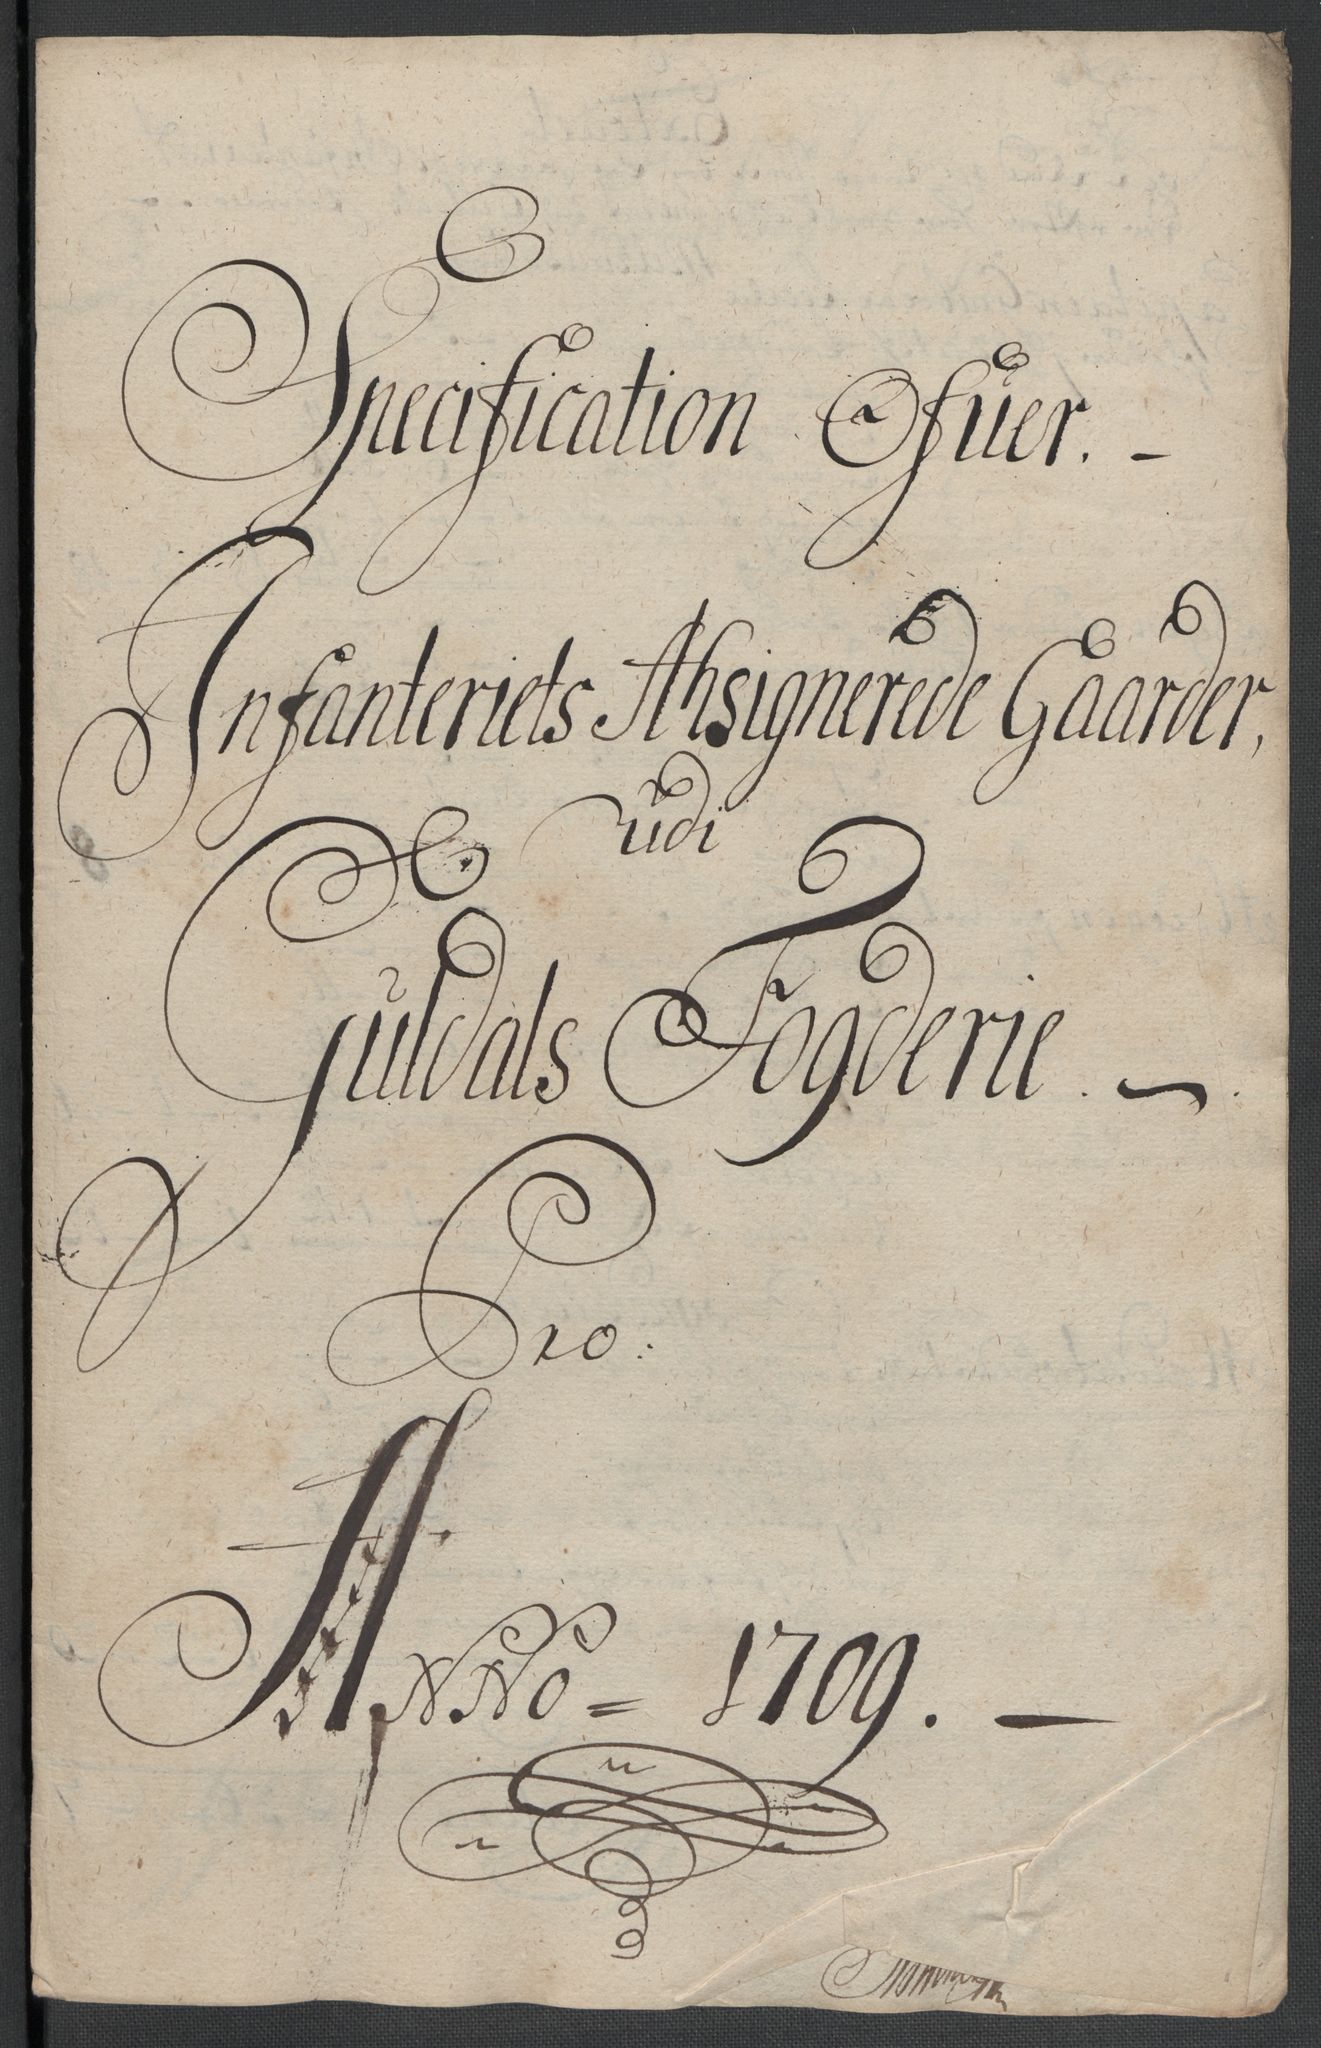 Specification Ofuer. -
Infanteriets Assignerede Gaarder,
udi
Guldals Fogderie. -
Pro:
ANNo = 1709. -